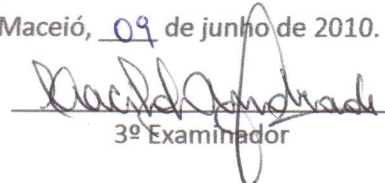 Maceió, 09 de junho de 2010.
3º Examinador